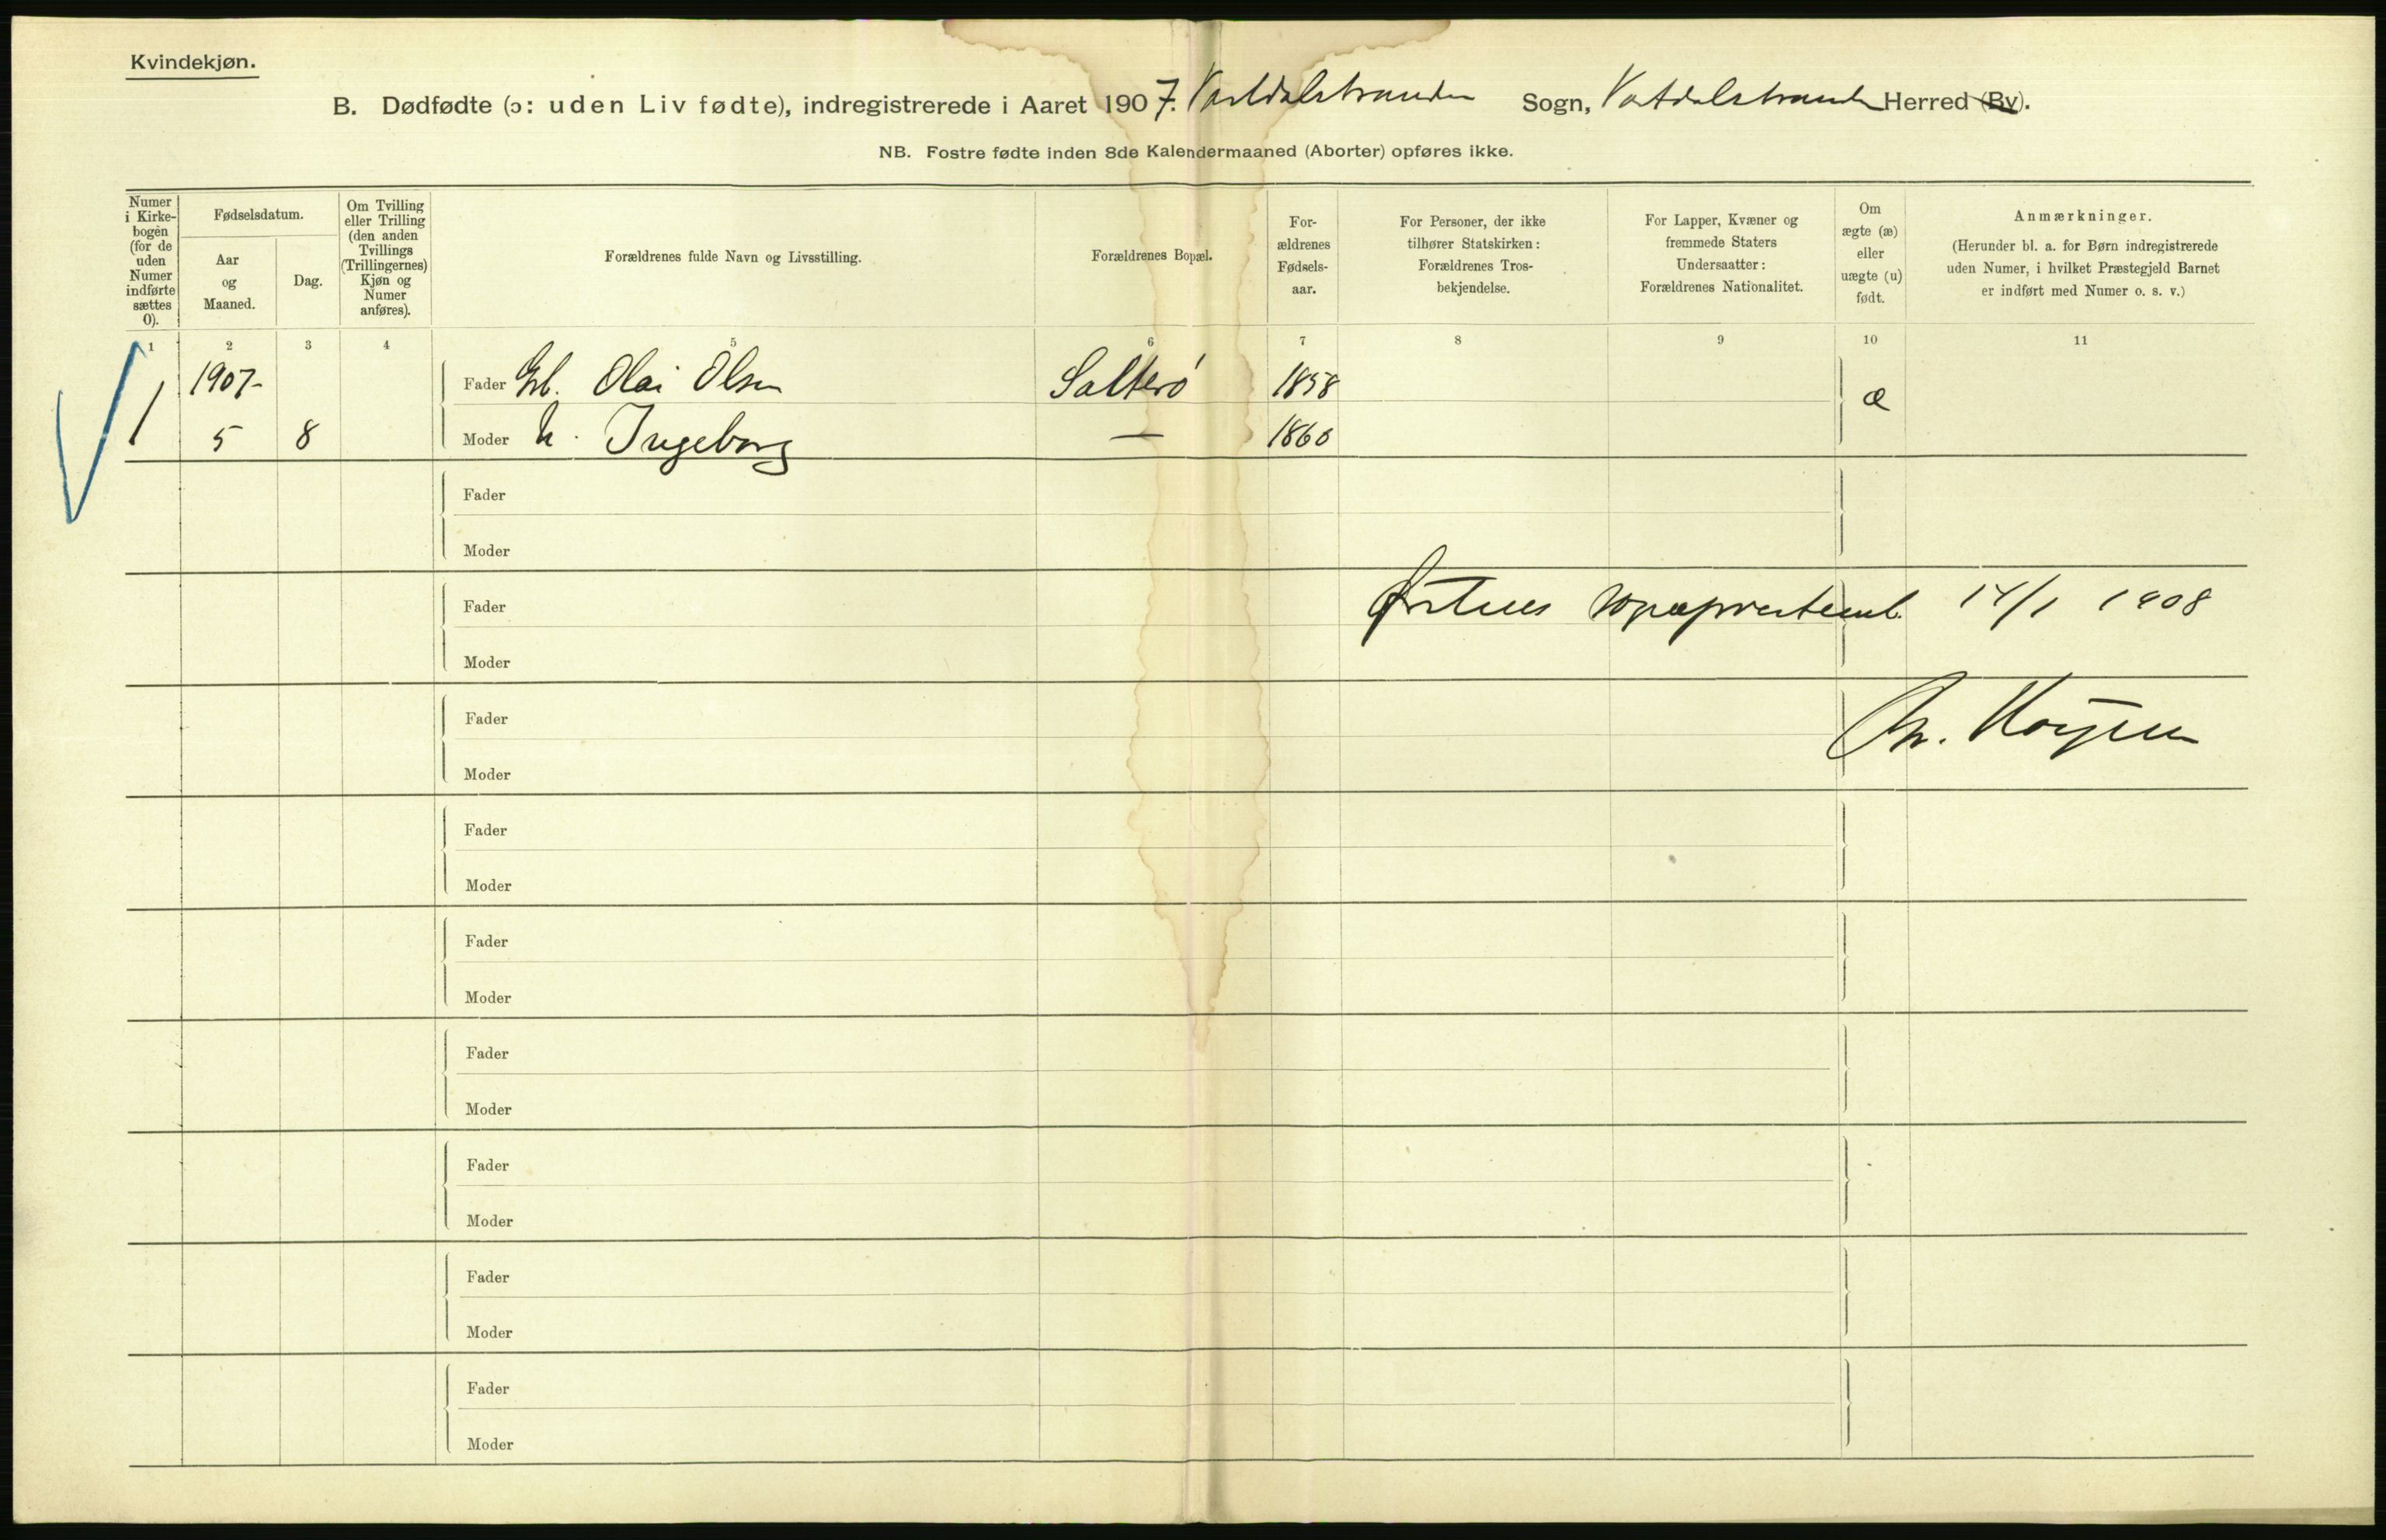 Kvindekjøn.
B. Dødfødte (ɔ: uden Liv fødte), indregistrerede i Aaret 1907. Vartdalstranden Sogn, Vartdalstranden Herred (By).
NB. Fostre fødte inden 8de Kalendermaaned (Aborter) opføres ikke.
Numer i Kirkebogen (for de uden Numer indførte sættes 0).
Fødselsdatum.
Aar og Maaned.
Dag.
Om Tvilling eller Trilling (den anden Tvillings (Trillingernes) Kjøn og Numer anføres).
Forældrenes fulde Navn og Livsstilling.
Forældrenes Bopæl.
Forældrenes Fødselsaar.
For Personer, der ikke tilhører Statskirken: Forældrenes Trosbekjendelse.
For Lapper, Kvæner og fremmede Staters Undersaatter: Forældrenes Nationalitet.
Om ægte (æ) eller uægte (u) født.
Anmærkninger.
(Herunder bl. a. for Børn indregistrerede uden Numer, i hvilket Præstegjeld Barnet er indført med Numer o. s. v.)
1 2 3 4 5 6 7 8 9 10 11
1 1907- Fader Gb. Olai Olsen Salterö 1858 æ
5 8 Moder h. Ingeborg — 1860
Fader
Moder
Fader 14/1 1908
Moder
Fader
Moder
Fader
Moder
Fader
Moder
Fader
Moder
Fader
Moder
Fader
Moder
Fader
Moder